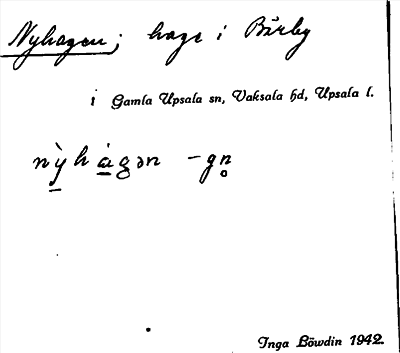 Nyhagen; hage i Bärby
i Gamla Upsala sn, Vaksala hd, Upsala l.
nỳ̲há̲gən -gn̥
Inga Löwdin 1942.